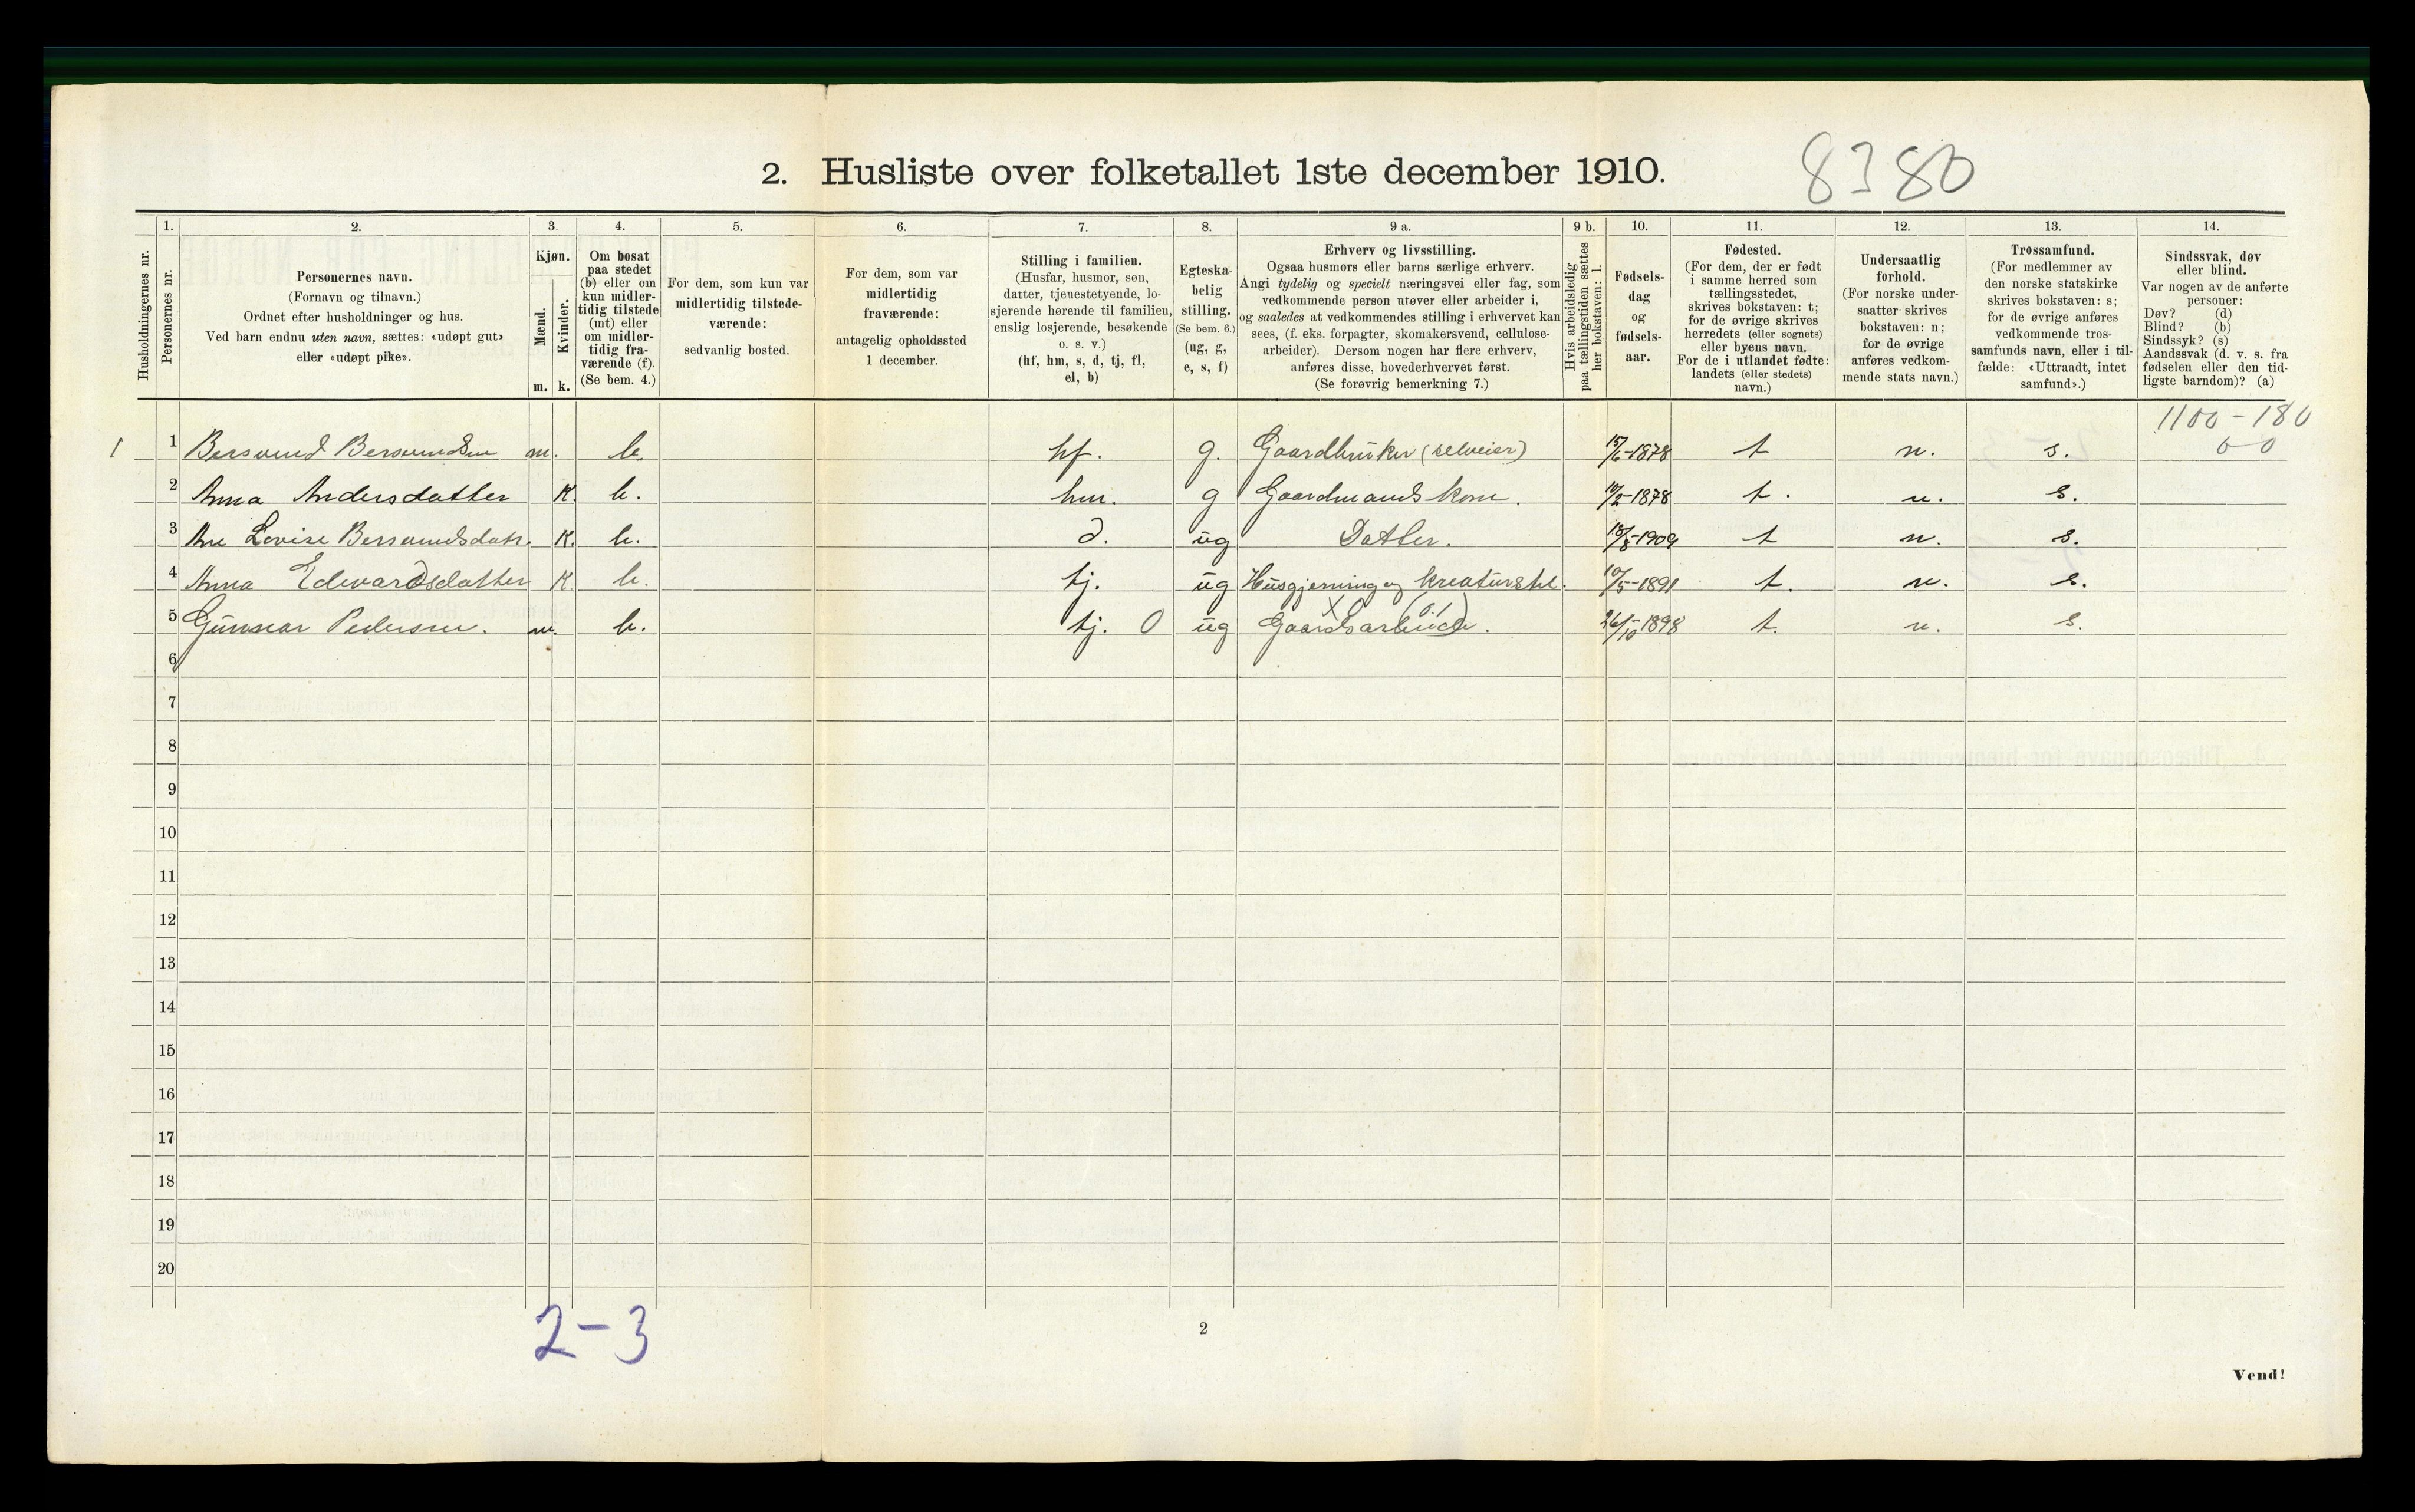 2. Husliste over folketallet 1ste december 1910. 8380
Husholdningernes nr.
1.
Personernes nr.
2.
Personernes navn.
(Fornavn og tilnavn.)
Ordnet efter husholdninger og hus.
Ved barn endnu uten navn, sættes: «udøpt gut»
eller «udøpt pike».
3.
Kjøn.
Mænd.
Kvinder.
m. k.
4.
Om bosat
paa stedet
(b) eller om
kun midler-
tidig tilstede
(mt) eller
om midler-
tidig fra-
værende (f).
(Se bem. 4.)
5.
For dem, som kun var
midlertidig tilstede-
værende:
sedvanlig bosted.
6.
For dem, som var
midlertidig
fraværende:
antagelig opholdssted
1 december.
7.
Stilling i familien.
(Husfar, husmor, søn,
datter, tjenestetyende, lo-
sjerende hørende til familien,
enslig losjerende, besøkende
o. s. v.)
(hf, hm, s, d, tj, fl,
el, b)
8.
Egteska-
belig
stilling.
(Se bem. 6.)
(ug, g,
e, s, f)
9 a.
Erhverv og livsstilling.
Ogsaa husmors eller barns særlige erhverv.
Angi tydelig og specielt næringsvei eller fag, som
vedkommende person utøver eller arbeider i,
og saaledes at vedkommendes stilling i erhvervet kan
sees, (f. eks. forpagter, skomakersvend, cellulose-
arbeider). Dersom nogen har flere erhverv,
anføres disse, hovederhvervet først.
(Se forøvrig bemerkning 7.)
9 b.
Hvis arbeidsledig
paa tællingstiden sættes
her bokstaven: l.
10.
Fødsels-
dag
og
fødsels-
aar.
11.
Fødested.
(For dem, der er født
i samme herred som
tællingsstedet,
skrives bokstaven: t;
for de øvrige skrives
herredets (eller sognets)
eller byens navn.
For de i utlandet fødte:
landets (eller stedets)
navn.)
12.
Undersaatlig
forhold.
(For norske under-
saatter skrives
bokstaven: n;
for de øvrige
anføres vedkom-
mende stats navn.)
13.
Trossamfund.
(For medlemmer av
den norske statskirke
skrives bokstaven: s;
for de øvrige anføres
vedkommende tros-
samfunds navn, eller i til-
fælde: «Uttraadt, intet
samfund».)
14.
Sindssvak, døv
eller blind.
Var nogen av de anførte
personer:
Døv? (d)
Blind? (b)
Sindssyk? (s)
Aandssvak (d. v. s. fra
fødselen eller den tid-
ligste barndom)? (a)
1100-180
0-0
1 1 Bersvend Bersvendsen m. b. hf. g. Gaardbruker (selveier) 15/6-1878 t n. s.
2 Anna Andersdatter K. b. hm. g Gaardmands kone. 10/2-1878 t. n. s.
3 Ane Lovise Bersvendsdatr. K. b. d. ug Datter. 18/8-1909 t n. s.
4 Anna Edvardsdatter K. b. tj. ug Husgjerning og kreaturstel. 10/5-1891 t. n. s.
X0 (0.1)
5 Gunnar Pedersen. m. b. tj. 0 ug Gaardsarbeide. 26/10-1898 t. n. s.
6
7
8
9
10
11
12
13
14
15
16
17
18
19
20
2-3
2
Vend!